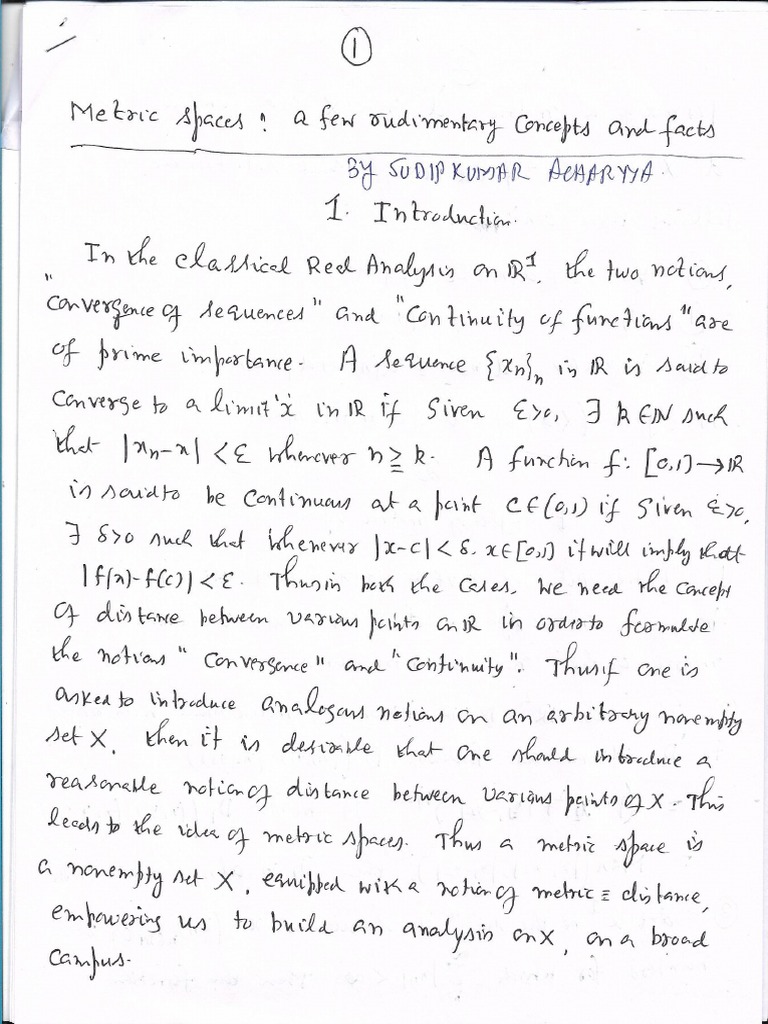 ①
Metric spaces : a few rudimentary concepts and facts
BY SUDIP KUMAR ACHARYYA.
1. Introduction.
In the classical Real Analysis on ℝ¹, the two notions,
"convergence of sequences" and "continuity of functions" are
of prime importance. A sequence {xₙ}ₙ in ℝ is said to
converge to a limit 'x' in ℝ if given ε>0, ∃ k∈ℕ such
that |xₙ-x| < ε whenever n ≥ k. A function f: [0,1]→ℝ
is said to be continuous at a point c∈(0,1) if given ε>0,
∃ δ>0 such that whenever |x-c| < δ, x∈[0,1] it will imply that
|f(x)-f(c)| < ε. Thus in both the cases, we need the concept
of distance between various points on ℝ in order to formulate
the notions "convergence" and "continuity". Thus if one is
asked to introduce analogous notions on an arbitrary nonempty
set X, then it is desirable that one should introduce a
reasonable notion of distance between various points of X. This
leads to the idea of metric spaces. Thus a metric space is
a nonempty set X, equipped with a notion of metric ≡ distance,
empowering us to build an analysis on X, on a broad
campus.